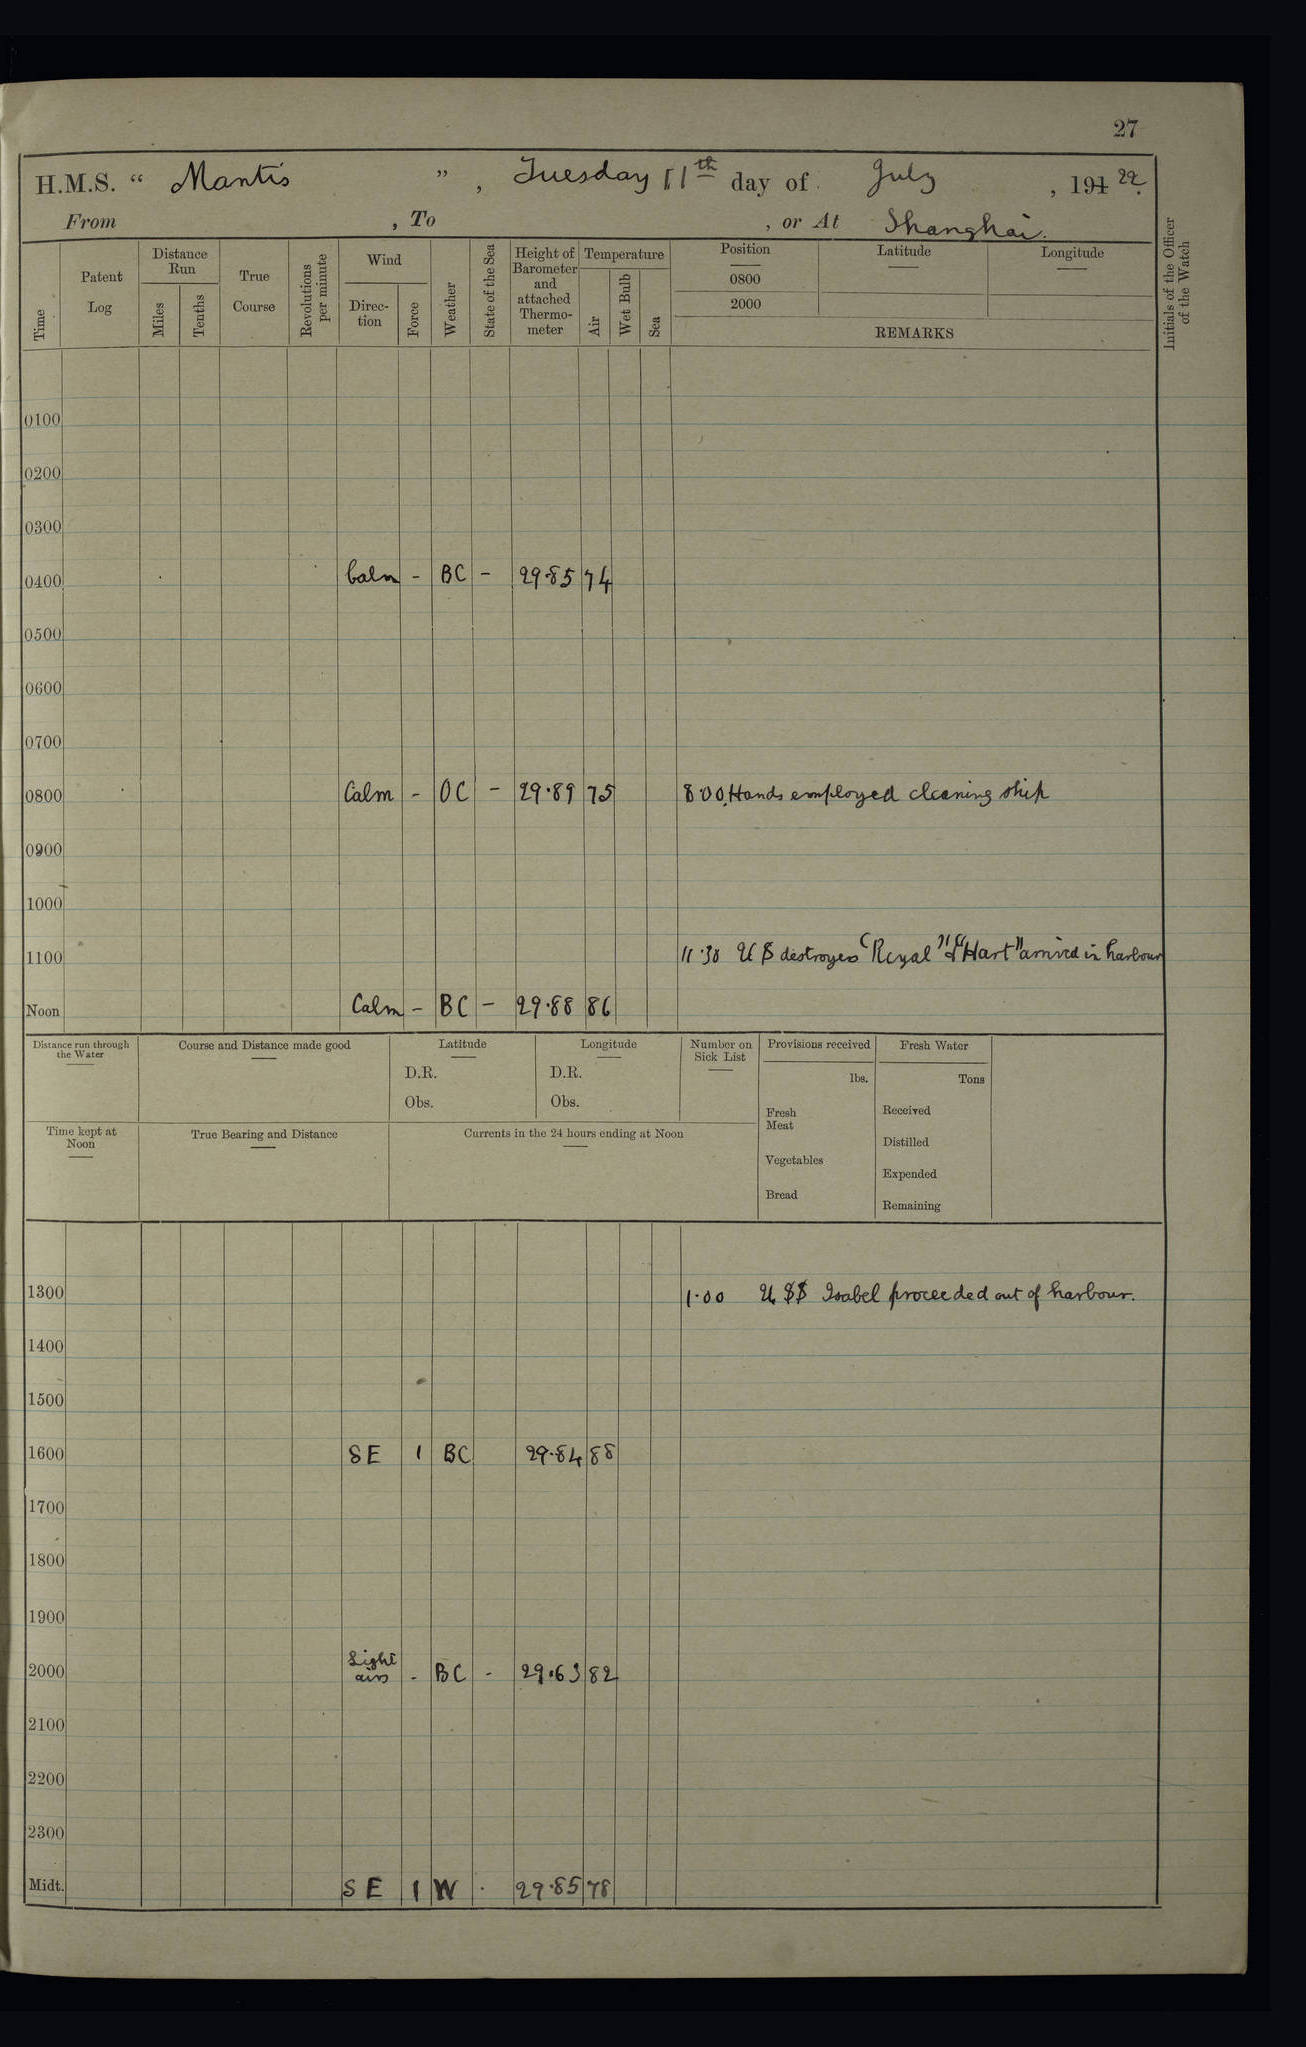 27
H.M.S. “ Mantis ”, Tuesday 11th day of July, 191 22.
From , To , or At Shanghai.
Time
Patent Log
Distance Run
Miles
Tenths
True Course
Revolutions per minute
Wind
Direc-tion
Force
Weather
State of the Sea
Height of Barometer and attached Thermo-meter
Temperature
Air
Wet Bulb
Sea
Position
0800
2000
Latitude
Longitude
REMARKS
Initials of the Officer of the Watch
0100
0200
0300
0400 Calm - BC - 29.85 74
0500
0600
0700
0800 Calm - OC - 29.89 75 8.00. Hands employed cleaning ship
0900
1000
1100 11.30 US destroyers "Royal" & "Hart" arrived in harbour
Noon Calm - BC - 29.88 86
Distance run through the Water
Course and Distance made good
Latitude
D.R.
Obs.
Longitude
D.R.
Obs.
Number on Sick List
Provisions received
lbs.
Fresh Meat
Vegetables
Bread
Fresh Water
Tons
Received
Distilled
Expended
Remaining
Time kept at Noon
True Bearing and Distance
Currents in the 24 hours ending at Noon
1300 1.00 USS Isabel proceeded out of harbour.
1400
1500
1600 SE 1 BC 29.84 88
1700
1800
1900
2000 Light airs - BC - 29.63 82
2100
2200
2300
Midt. SE 1 W . 29.85 78